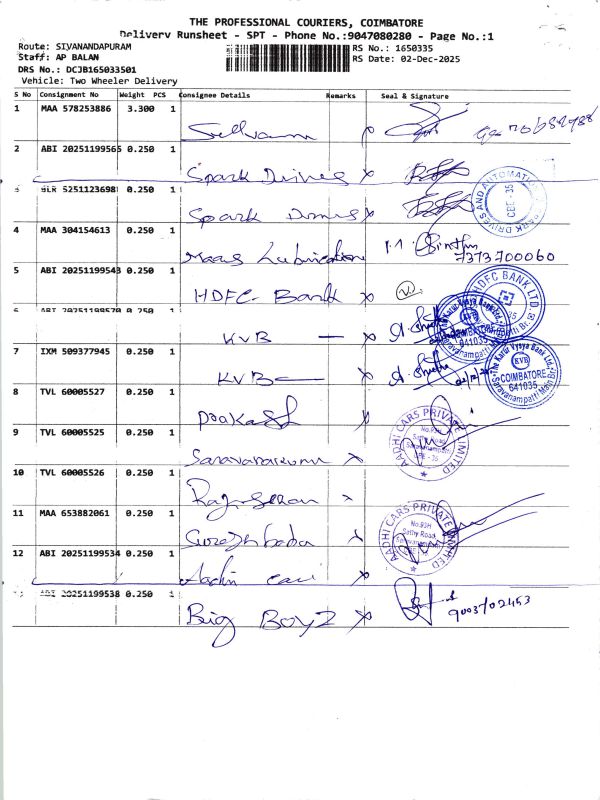 THE PROFESSIONAL COURIERS, COIMBATORE
Delivery Runsheet - SPT - Phone No.:9047080280 - Page No.:1
Route: SIVANANDAPURAM
RS No.: 1650335
Staff: AP BALAN
RS Date: 02-Dec-2025
DRS No.: DCJB165033501
Vehicle: Two Wheeler Delivery
S No Consignment No Weight PCS Consignee Details Remarks Seal & Signature
1 MAA 578253886 3.300 1
Selvam
2 ABI 20251199565 0.250 1
Spark Drives
3 BLR 5251123698 0.250 1
Spark Drives
4 MAA 304154613 0.250 1
Maas Lubrication
7373700060
5 ABI 20251199543 0.250 1
HDFC Bank
HDFC BANK LTD.
6 ABI 20251199570 0.250 1
KVB
641035
7 IXM 509377945 0.250 1
KVB
The Karur Vysya Bank Ltd.
KVB
COIMBATORE
641035
Saravanampatti Main Br.
8 TVL 60005527 0.250 1
Prakash
9 TVL 60005525 0.250 1
Saravanakumar
AADHI CARS PRIVATE LIMITED
10 TVL 60005526 0.250 1
Rajasekaran
11 MAA 653882061 0.250 1
Sureshbabu
AADHI CARS PRIVATE LIMITED
No.93H
Sathy Road
12 ABI 20251199534 0.250 1
Aadhi cars
13 ABI 20251199538 0.250 1
Big BoyZ
9003702453